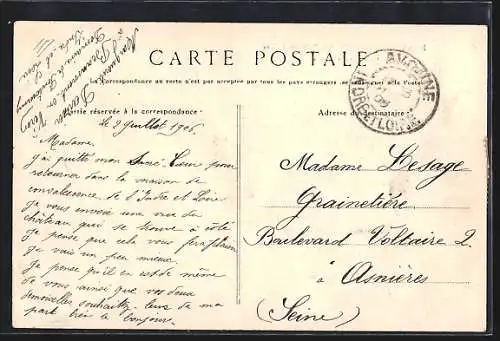 CARTE POSTALE
La Correspondance au recto n'est pas acceptée par tous les pays étrangers
Partie réservée à la correspondance
Adresse du destinataire
Le 9 Juillet 1906.
Madame,
J'ai quitté mon Sacré Cœur pour
retourner dans la maison de
convalescence de l'Indre et Loire
Je vous envoie une vue du
château qui se trouve à côté
Je pense que cela vous fera plaisir
Je vais un peu mieux.
Je pense qu'il en est de même
de vous ainsi que vos deux
demoiselles souhaitez leur de ma
part bien le bonjour.
AVOINE
INDRE-ET-LOIRE
Madame Lesage
Grainetière
Boulevard Voltaire 2
à Asnières
(Seine)